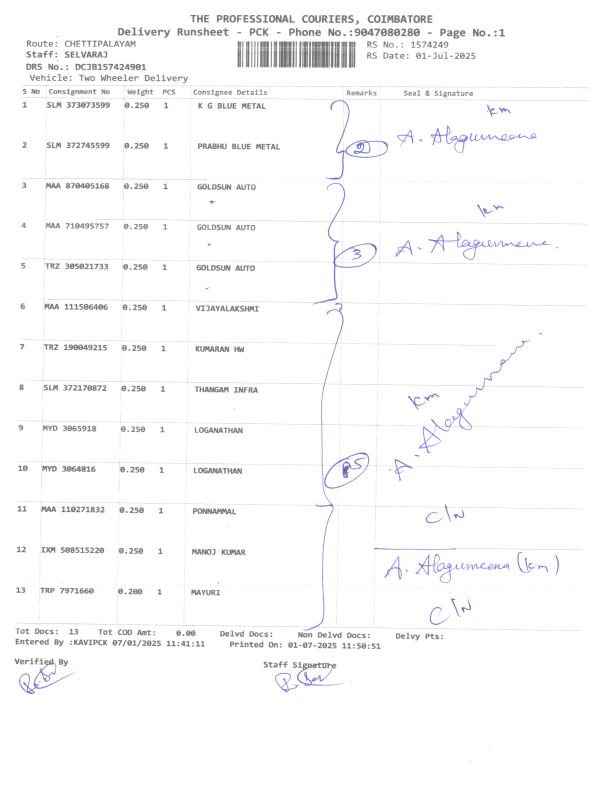 THE PROFESSIONAL COURIERS, COIMBATORE
Delivery Runsheet - PCK - Phone No.:9047080280 - Page No.:1
Route: CHETTIPALAYAM RS No.: 1574249
Staff: SELVARAJ RS Date: 01-Jul-2025
DRS No.: DCJB157424901
Vehicle: Two Wheeler Delivery
S No Consignment No Weight PCS Consignee Details Remarks Seal & Signature
1 SLM 373073599 0.250 1 K G BLUE METAL km
2 SLM 372745599 0.250 1 PRABHU BLUE METAL 2 A. Alagumeena
3 MAA 870405168 0.250 1 GOLDSUN AUTO km
4 MAA 710495757 0.250 1 GOLDSUN AUTO A. Alagumeena.
5 TRZ 305021733 0.250 1 GOLDSUN AUTO 3
6 MAA 111506406 0.250 1 VIJAYALAKSHMI
7 TRZ 190049215 0.250 1 KUMARAN HW
8 SLM 372170872 0.250 1 THANGAM INFRA km
9 MYD 3065918 0.250 1 LOGANATHAN A. Alagumeena.
10 MYD 3064816 0.250 1 LOGANATHAN 5
11 MAA 110271832 0.250 1 PONNAMMAL C/N
12 IXM 508515220 0.250 1 MANOJ KUMAR A. Alagumeena (km)
13 TRP 7971660 0.200 1 MAYURI C/N
Tot Docs: 13 Tot COD Amt: 0.00 Delvd Docs: Non Delvd Docs: Delvy Pts:
Entered By :KAVIPCK 07/01/2025 11:41:11 Printed On: 01-07-2025 11:50:51
Verified By Staff Signature